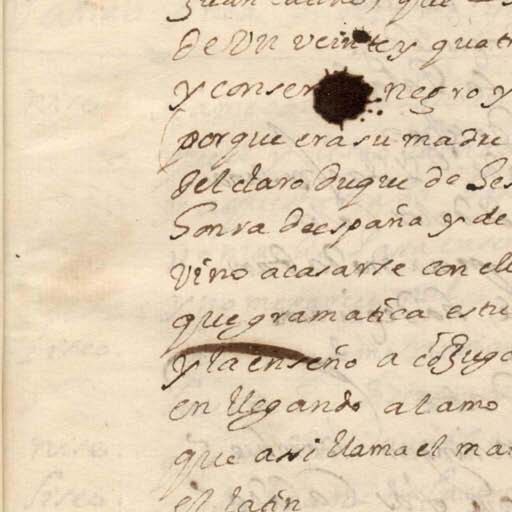 Juan latino, que
de vn veinte y quat
y conser negro y
porque era su madre
del claro Duque de Ses
honra de españa y de
vino a casarse con el
que gramatica estu
y la enseño a cõjuga
en llegando al amo
que assi llama el ma
el latin